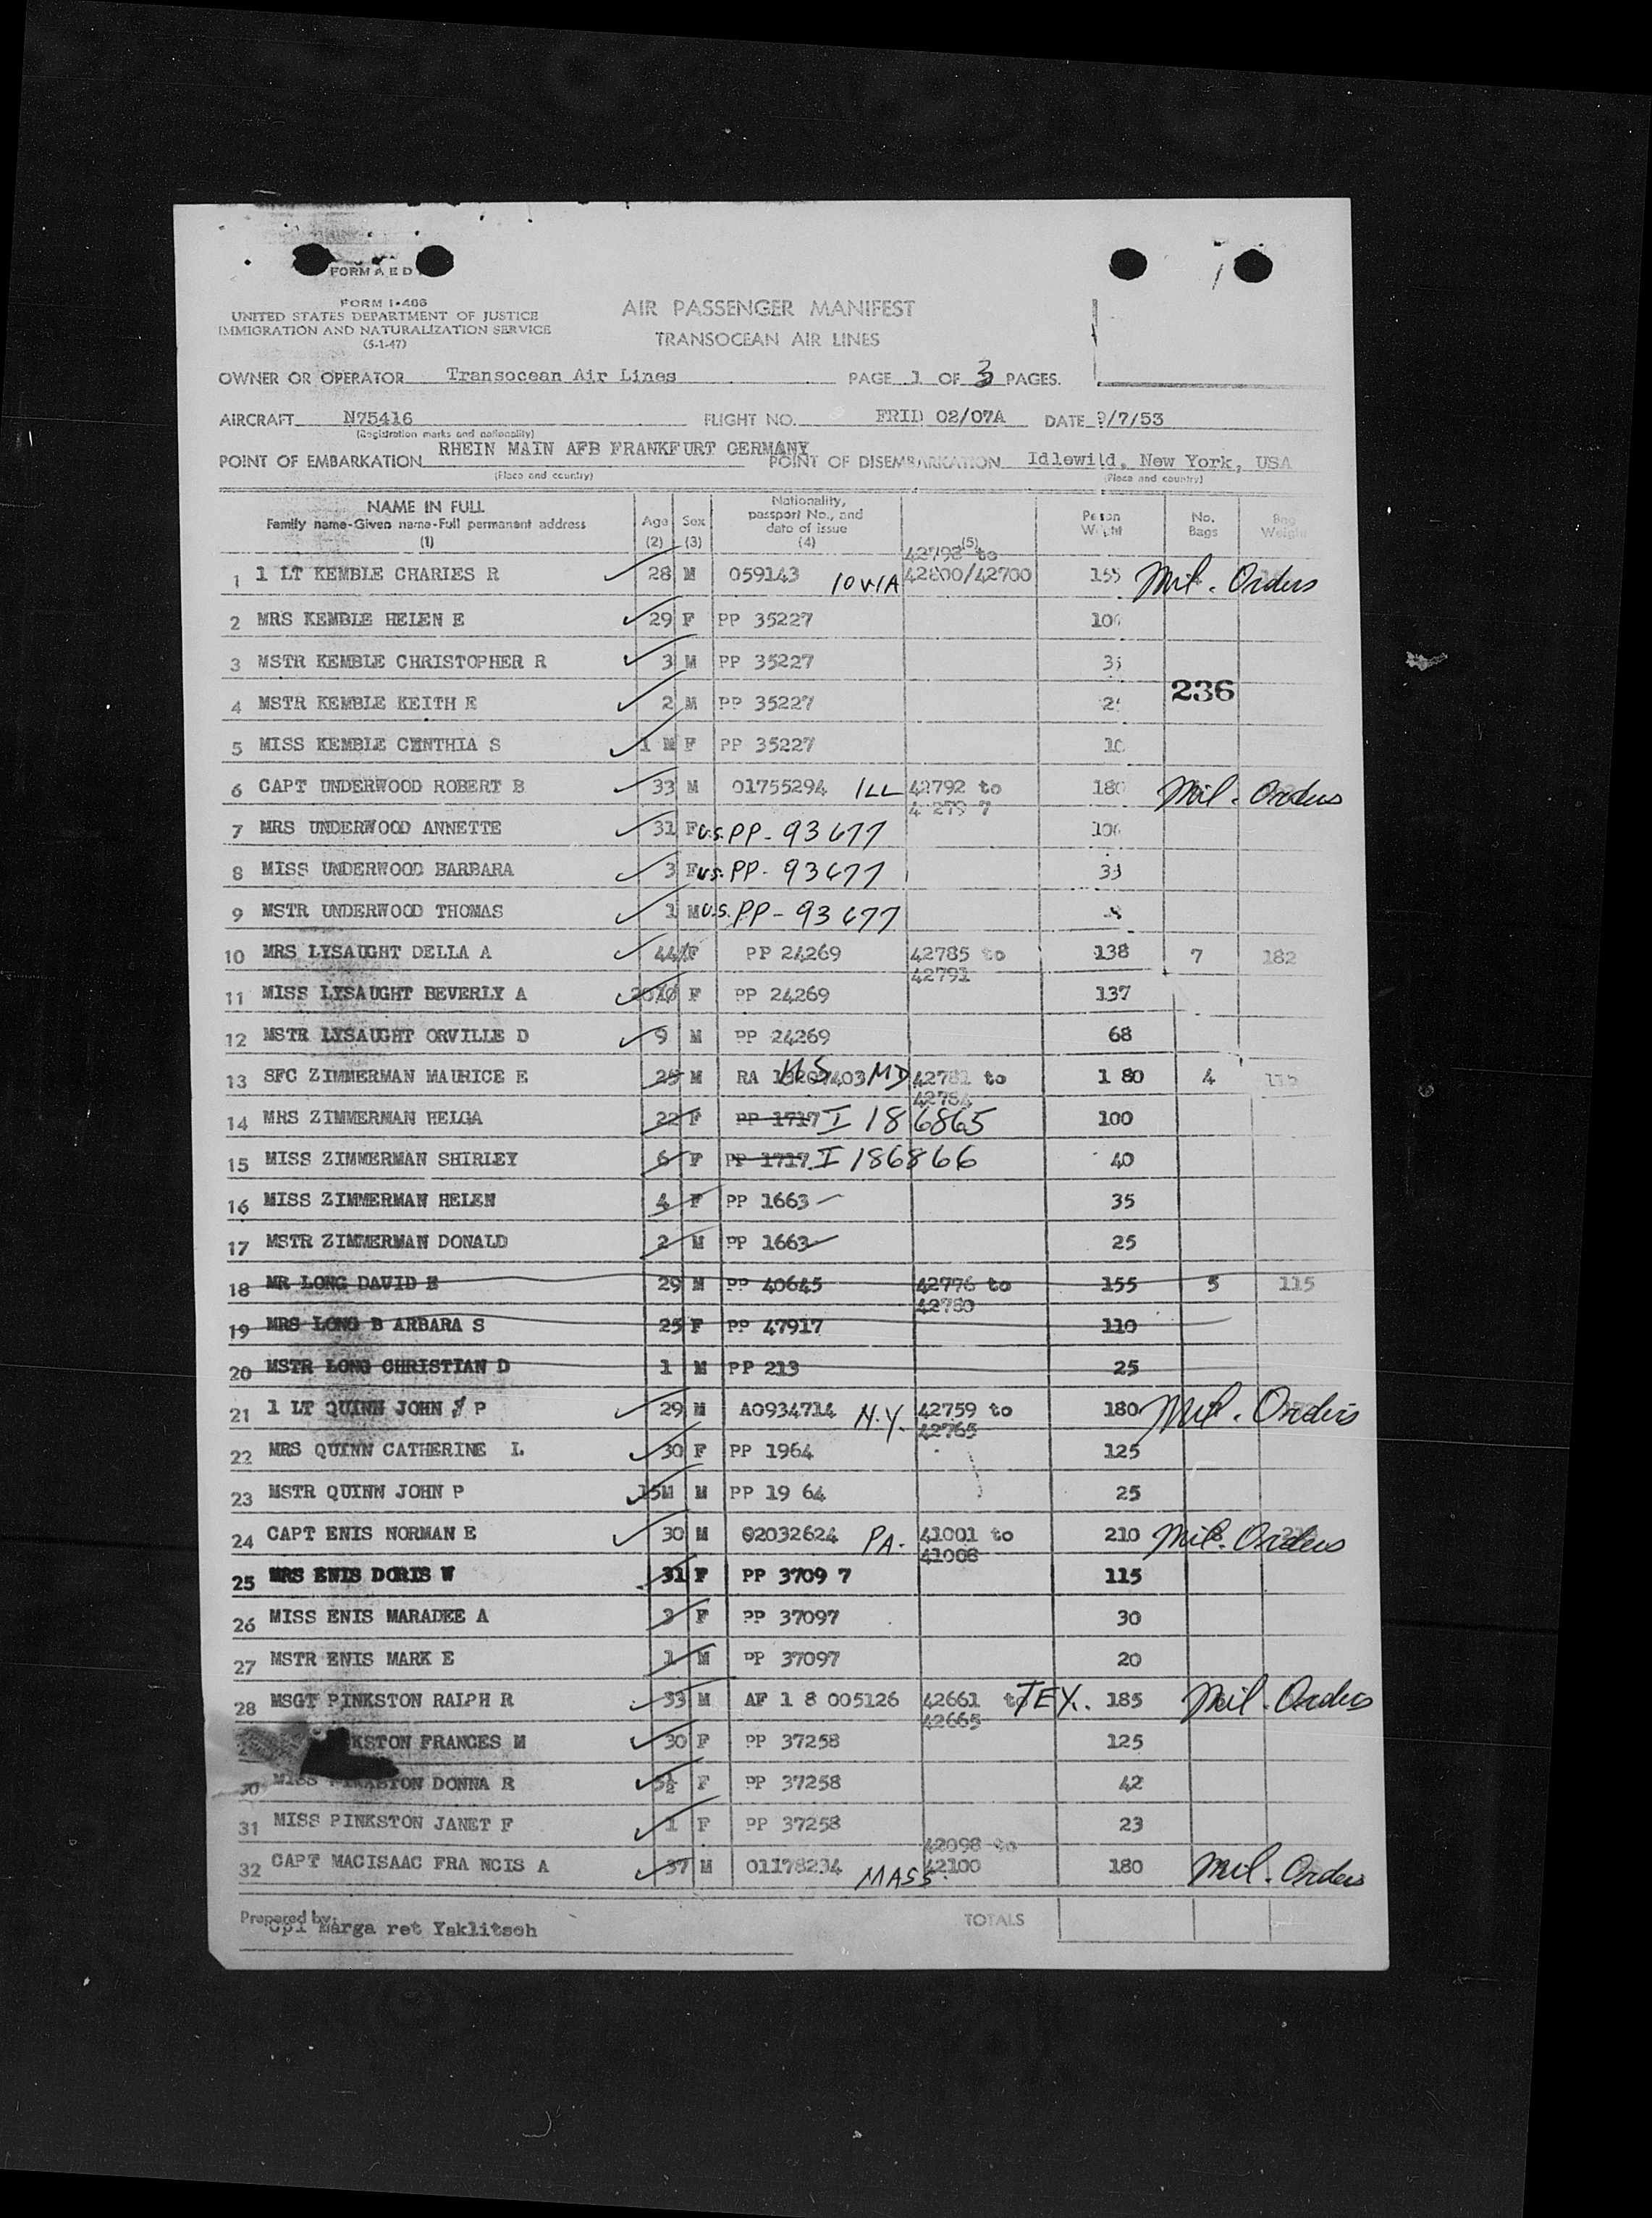 FORM A E D
FORM I-466
UNITED STATES DEPARTMENT OF JUSTICE
IMMIGRATION AND NATURALIZATION SERVICE
(5-1-47)
AIR PASSENGER MANIFEST
TRANSOCEAN AIR LINES
OWNER OR OPERATOR Transocean Air Lines PAGE 1 OF 3 PAGES.
AIRCRAFT N75416 FLIGHT NO. FRID 02/07A DATE 9/7/53
(Registration marks and nationality)
POINT OF EMBARKATION RHEIN MAIN AFB FRANKFURT GERMANY POINT OF DISEMBARKATION Idlewild, New York, USA
(Place and country) (Place and country)
NAME IN FULL Family name-Given name-Full permanent address (1) Age (2) Sex (3) Nationality, passport No., and date of issue (4) (5) Person Weight No. Bags Bag Weight
42798 to
1 1 LT KEMBLE CHARLES R 28 M 059143 IOWA 42800/42700 155 Mil. Orders
2 MRS KEMBLE HELEN E 29 F PP 35227
3 MSTR KEMBLE CHRISTOPHER R 3 M PP 35227
236
4 MSTR KEMBLE KEITH E 2 M PP 35227
5 MISS KEMBLE CENTHIA S 1 M F PP 35227
6 CAPT UNDERWOOD ROBERT B 33 M 01755294 ILL 42792 to 180 Mil. Orders
4 279 7
7 MRS UNDERWOOD ANNETTE 31 F U.S. PP - 93677
8 MISS UNDERWOOD BARBARA 3 F U.S. PP - 93677
9 MSTR UNDERWOOD THOMAS 1 M U.S. PP - 93677
10 MRS LYSAUGHT DELLA A 44 F PP 24269 42785 to 138 7 182
42791
11 MISS LYSAUGHT BEVERLY A F PP 24269 137
12 MSTR LYSAUGHT ORVILLE D 9 M PP 24269 68
13 SFC ZIMMERMAN MAURICE E 25 M RA US MD 42781 to 1 80 4 115
42784
14 MRS ZIMMERMAN HELGA 22 F PP 1717 I 186865 100
15 MISS ZIMMERMAN SHIRLEY 6 F PP 1717 I 186866 40
16 MISS ZIMMERMAN HELEN 4 F PP 1663 35
17 MSTR ZIMMERMAN DONALD 2 M PP 1663 25
18 MR LONG DAVID E 29 M PP 40645 42776 to 155 5 115
42780
19 MRS LONG B ARBARA S 25 F PP 47917 110
20 MSTR LONG CHRISTIAN D 1 M PP 213 25
21 1 LT QUINN JOHN P 29 M AO934714 N.Y. 42759 to 180 Mil. Orders
42765
22 MRS QUINN CATHERINE L 30 F PP 1964 125
23 MSTR QUINN JOHN P 15M M PP 19 64 25
24 CAPT ENIS NORMAN E 30 M 02032624 PA. 41001 to 210 Mil. Orders
41008
25 MRS ENIS DORIS W 31 F PP 3709 7 115
26 MISS ENIS MARADEE A 3 F PP 37097 30
27 MSTR ENIS MARK E 1 M PP 37097 20
28 MSGT PINKSTON RALPH R 33 M AF 1 8 005126 42661 to TEX. 185 Mil. Orders
42665
KSTON FRANCES M 30 F PP 37258 125
30 MISS PINKSTON DONNA R 5½ F PP 37258 42
31 MISS PINKSTON JANET F 1 F PP 37258 23
42098 to
32 CAPT MACISAAC FRA NCIS A 37 M 01178234 MASS. 42100 180 Mil. Orders
Prepared by: Cpl Marga ret Yaklitsch TOTALS